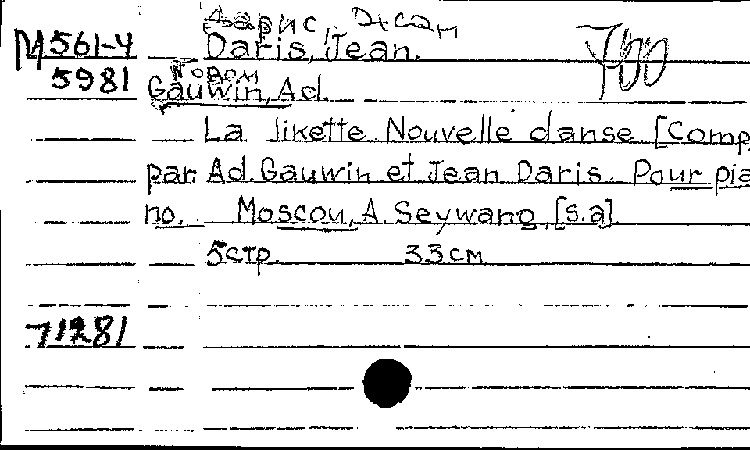 Дарис, Жан
М 561-4 Daris, Jean. 700
5981 Говэн
Gauwin, Ad.
La Jikette. Nouvelle danse [Comp.
par Ad. Gauwin et Jean Daris. Pour pia
no. Moscou, A. Seywang, [s.a].
5 стр. 33 см
71281